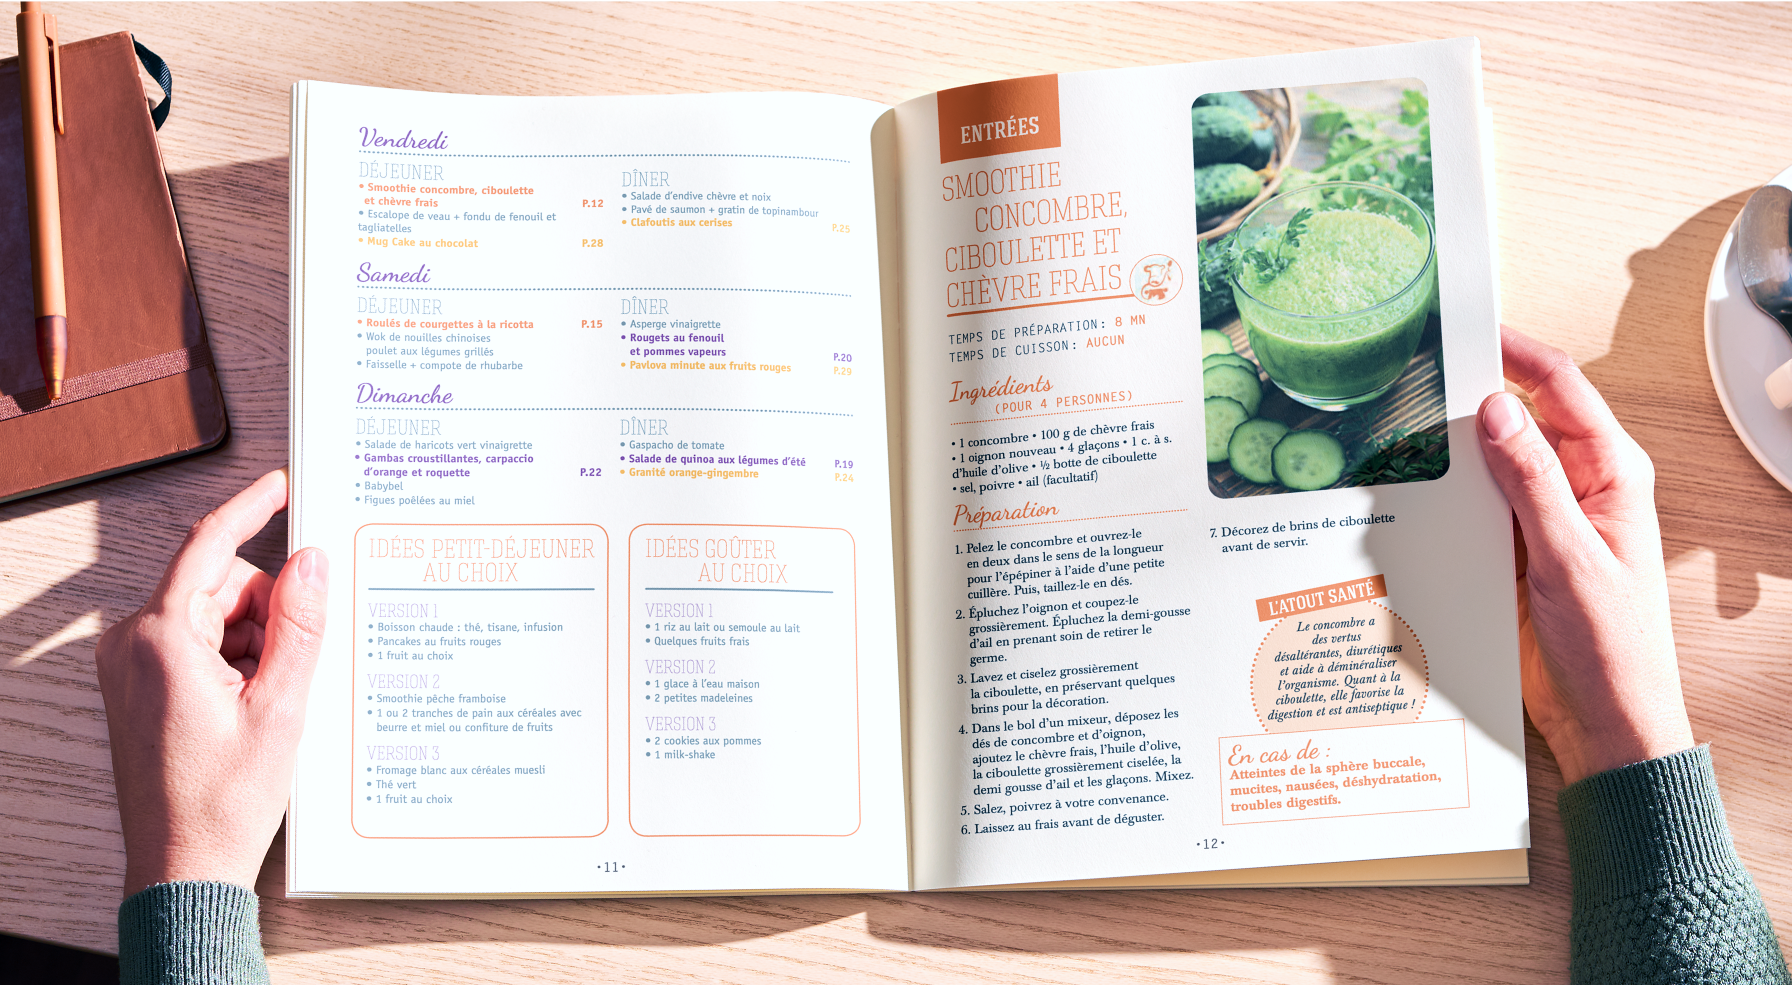 Vendredi
DÉJEUNER
• Smoothie concombre, ciboulette
et chèvre frais P.12
• Escalope de veau + fondu de fenouil et
tagliatelles
• Mug Cake au chocolat P.28
DÎNER
• Salade d'endive chèvre et noix
• Pavé de saumon + gratin de topinambour
• Clafoutis aux cerises P.25
Samedi
DÉJEUNER
• Roulés de courgettes à la ricotta P.15
• Wok de nouilles chinoises
poulet aux légumes grillés
• Faisselle + compote de rhubarbe
DÎNER
• Asperge vinaigrette
• Rougets au fenouil
et pommes vapeurs P.20
• Pavlova minute aux fruits rouges P.29
Dimanche
DÉJEUNER
• Salade de haricots vert vinaigrette
• Gambas croustillantes, carpaccio
d'orange et roquette P.22
• Babybel
• Figues poêlées au miel
DÎNER
• Gaspacho de tomate
• Salade de quinoa aux légumes d'été P.19
• Granité orange-gingembre P.24
IDÉES PETIT-DÉJEUNER
AU CHOIX
VERSION 1
• Boisson chaude : thé, tisane, infusion
• Pancakes au fruits rouges
• 1 fruit au choix
VERSION 2
• Smoothie pêche framboise
• 1 ou 2 tranches de pain aux céréales avec
beurre et miel ou confiture de fruits
VERSION 3
• Fromage blanc aux céréales muesli
• Thé vert
• 1 fruit au choix
IDÉES GOÛTER
AU CHOIX
VERSION 1
• 1 riz au lait ou semoule au lait
• Quelques fruits frais
VERSION 2
• 1 glace à l'eau maison
• 2 petites madeleines
VERSION 3
• 2 cookies aux pommes
• 1 milk-shake
•11•
ENTRÉES
SMOOTHIE
CONCOMBRE,
CIBOULETTE ET
CHÈVRE FRAIS
TEMPS DE PRÉPARATION : 8 MN
TEMPS DE CUISSON : AUCUN
Ingrédients
(POUR 4 PERSONNES)
• 1 concombre • 100 g de chèvre frais
• 1 oignon nouveau • 4 glaçons • 1 c. à s.
d'huile d'olive • ½ botte de ciboulette
• sel, poivre • ail (facultatif)
Préparation
1. Pelez le concombre et ouvrez-le
en deux dans le sens de la longueur
pour l'épépiner à l'aide d'une petite
cuillère. Puis, taillez-le en dés.
2. Épluchez l'oignon et coupez-le
grossièrement. Épluchez la demi-gousse
d'ail en prenant soin de retirer le
germe.
3. Lavez et ciselez grossièrement
la ciboulette, en préservant quelques
brins pour la décoration.
4. Dans le bol d'un mixeur, déposez les
dés de concombre et d'oignon,
ajoutez le chèvre frais, l'huile d'olive,
la ciboulette grossièrement ciselée, la
demi gousse d'ail et les glaçons. Mixez.
5. Salez, poivrez à votre convenance.
6. Laissez au frais avant de déguster.
7. Décorez de brins de ciboulette
avant de servir.
L'ATOUT SANTÉ
Le concombre a
des vertus
désaltérantes, diurétiques
et aide à déminéraliser
l'organisme. Quant à la
ciboulette, elle favorise la
digestion et est antiseptique !
En cas de :
Atteintes de la sphère buccale,
mucites, nausées, déshydratation,
troubles digestifs.
•12•